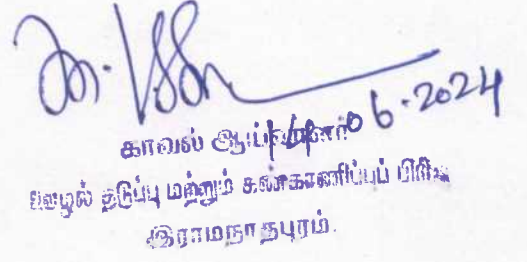 14-06-2024
காவல் ஆய்வாளர்
ஊழல் தடுப்பு மற்றும் கண்காணிப்புப் பிரிவு
இராமநாதபுரம்.